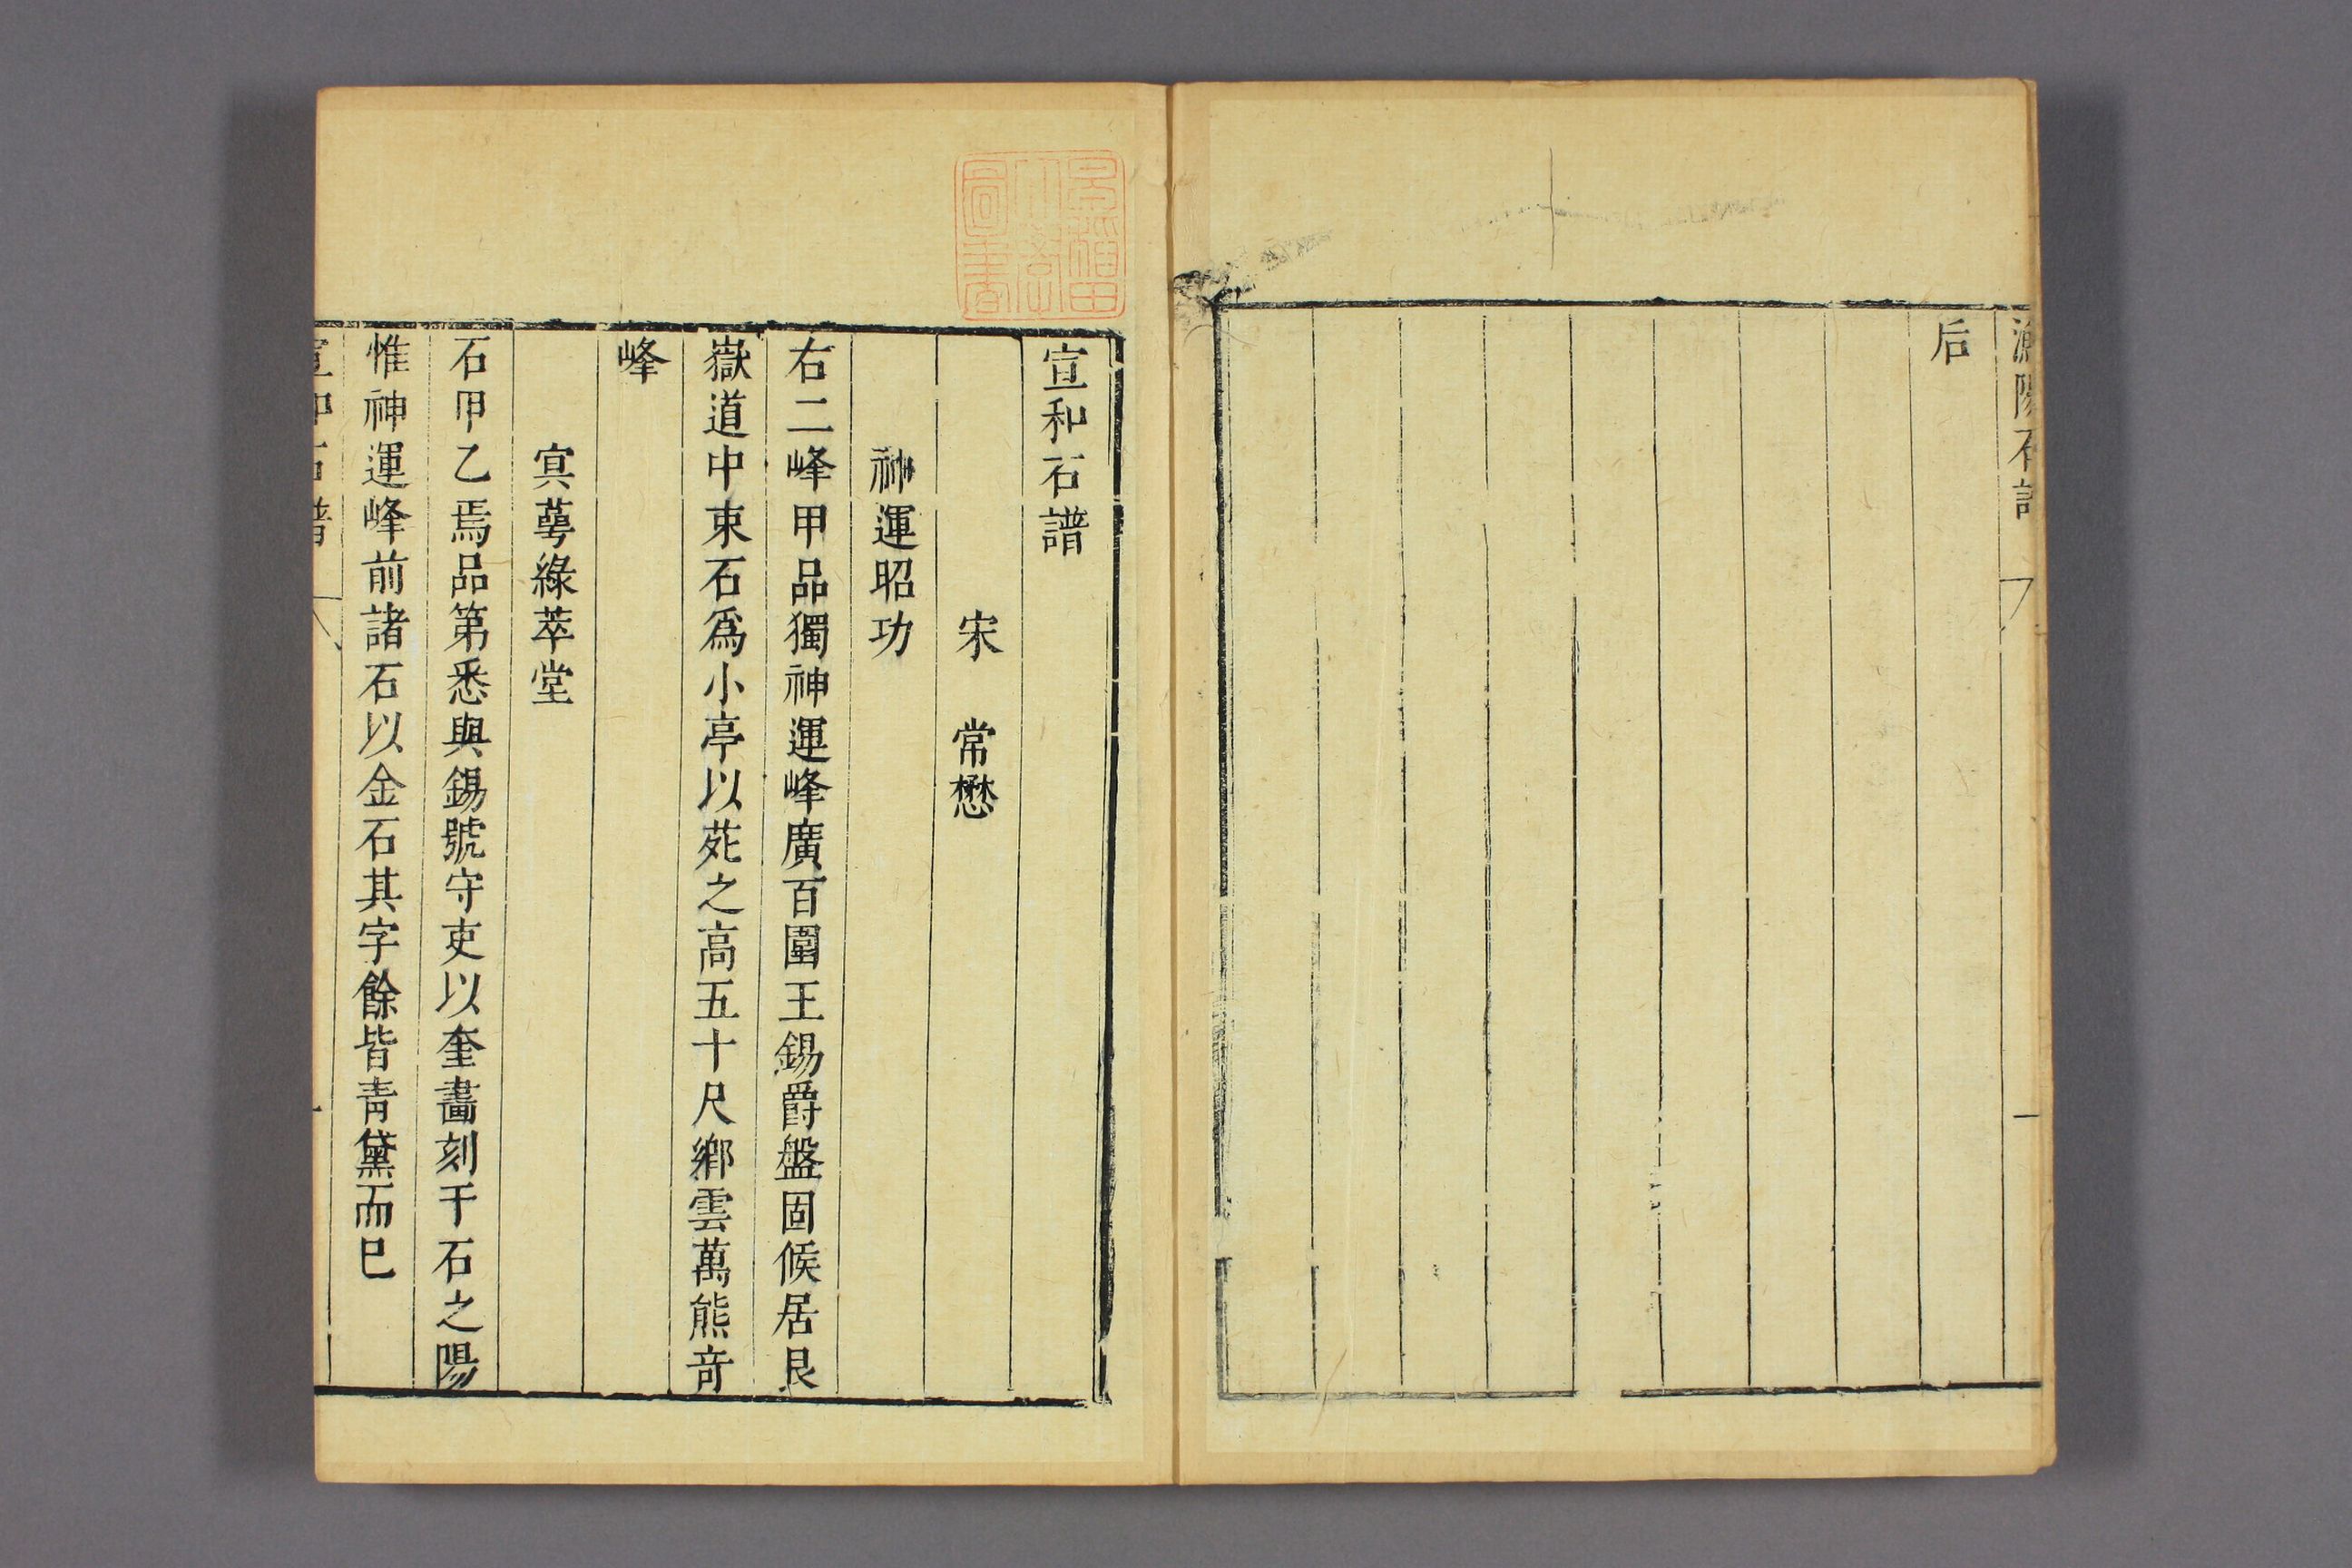 漁陽石譜
一
后
宣和石譜
宋 常懋
神運昭功
右二峰甲品獨神運峰廣百圍王錫爵盤固候居艮
嶽道中束石爲小亭以茈之高五十尺鄉雲萬熊竒
峰
㝠蕚綠萃堂
石甲乙焉品第悉與錫號守吏以奎畵刻于石之陽
惟神運峰前諸石以金石其字餘皆靑黛而巳
宣和石譜
早稻田大學圖書